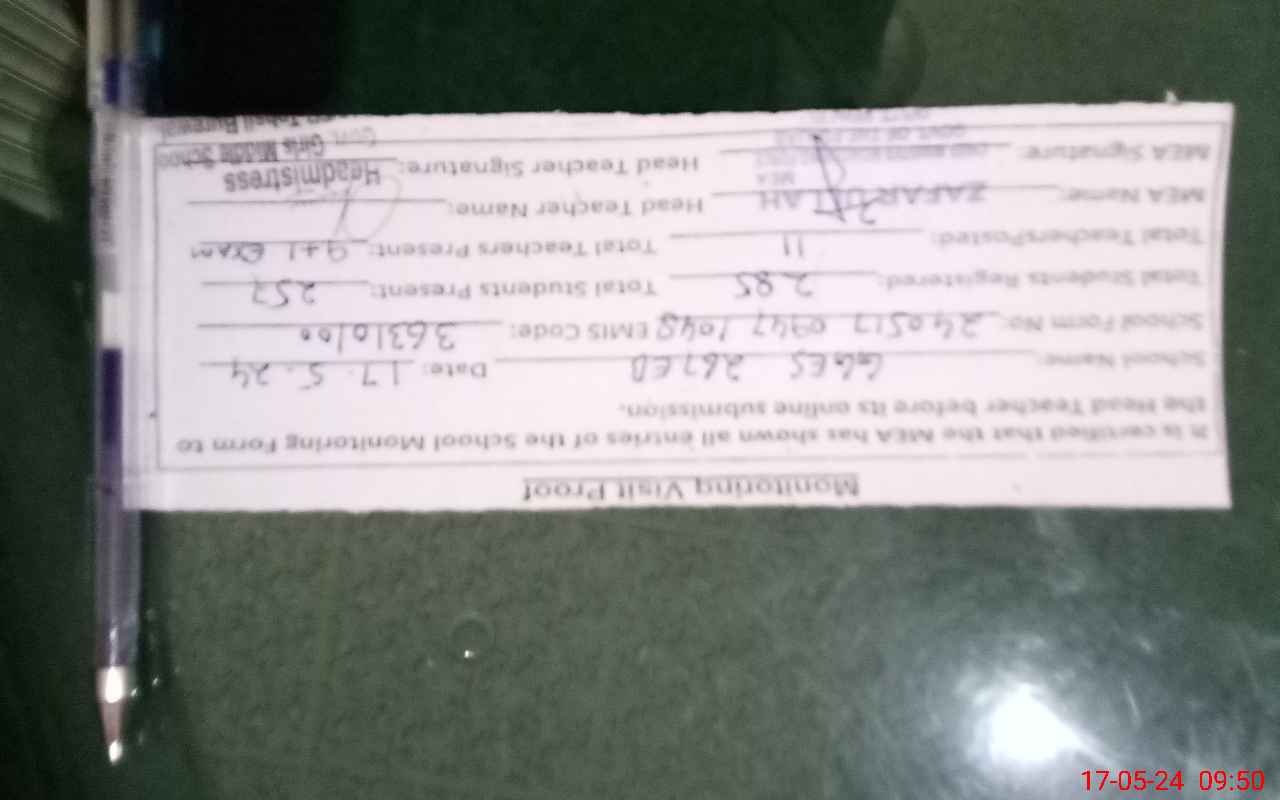 Monitoring Visit Proof
It is certified that the MEA has shown all entries of the School Monitoring Form to
the Head Teacher before its online submission.
School Name: GGES 267 EB Date: 17.5.24
School Form No: 240517 0947 1048 EMIS Code: 36310100
Total Students Registered: 285 Total Students Present: 257
Total TeachersPosted: 11 Total Teachers Present: 9+1 Exam
MEA Name: ZAFAR ULLAH Head Teacher Name:
MEA Signature: Head Teacher Signature:
MEA
Headmistress
Girls Middle School
Govt.
Tehsil Burewala
17-05-24 09:50